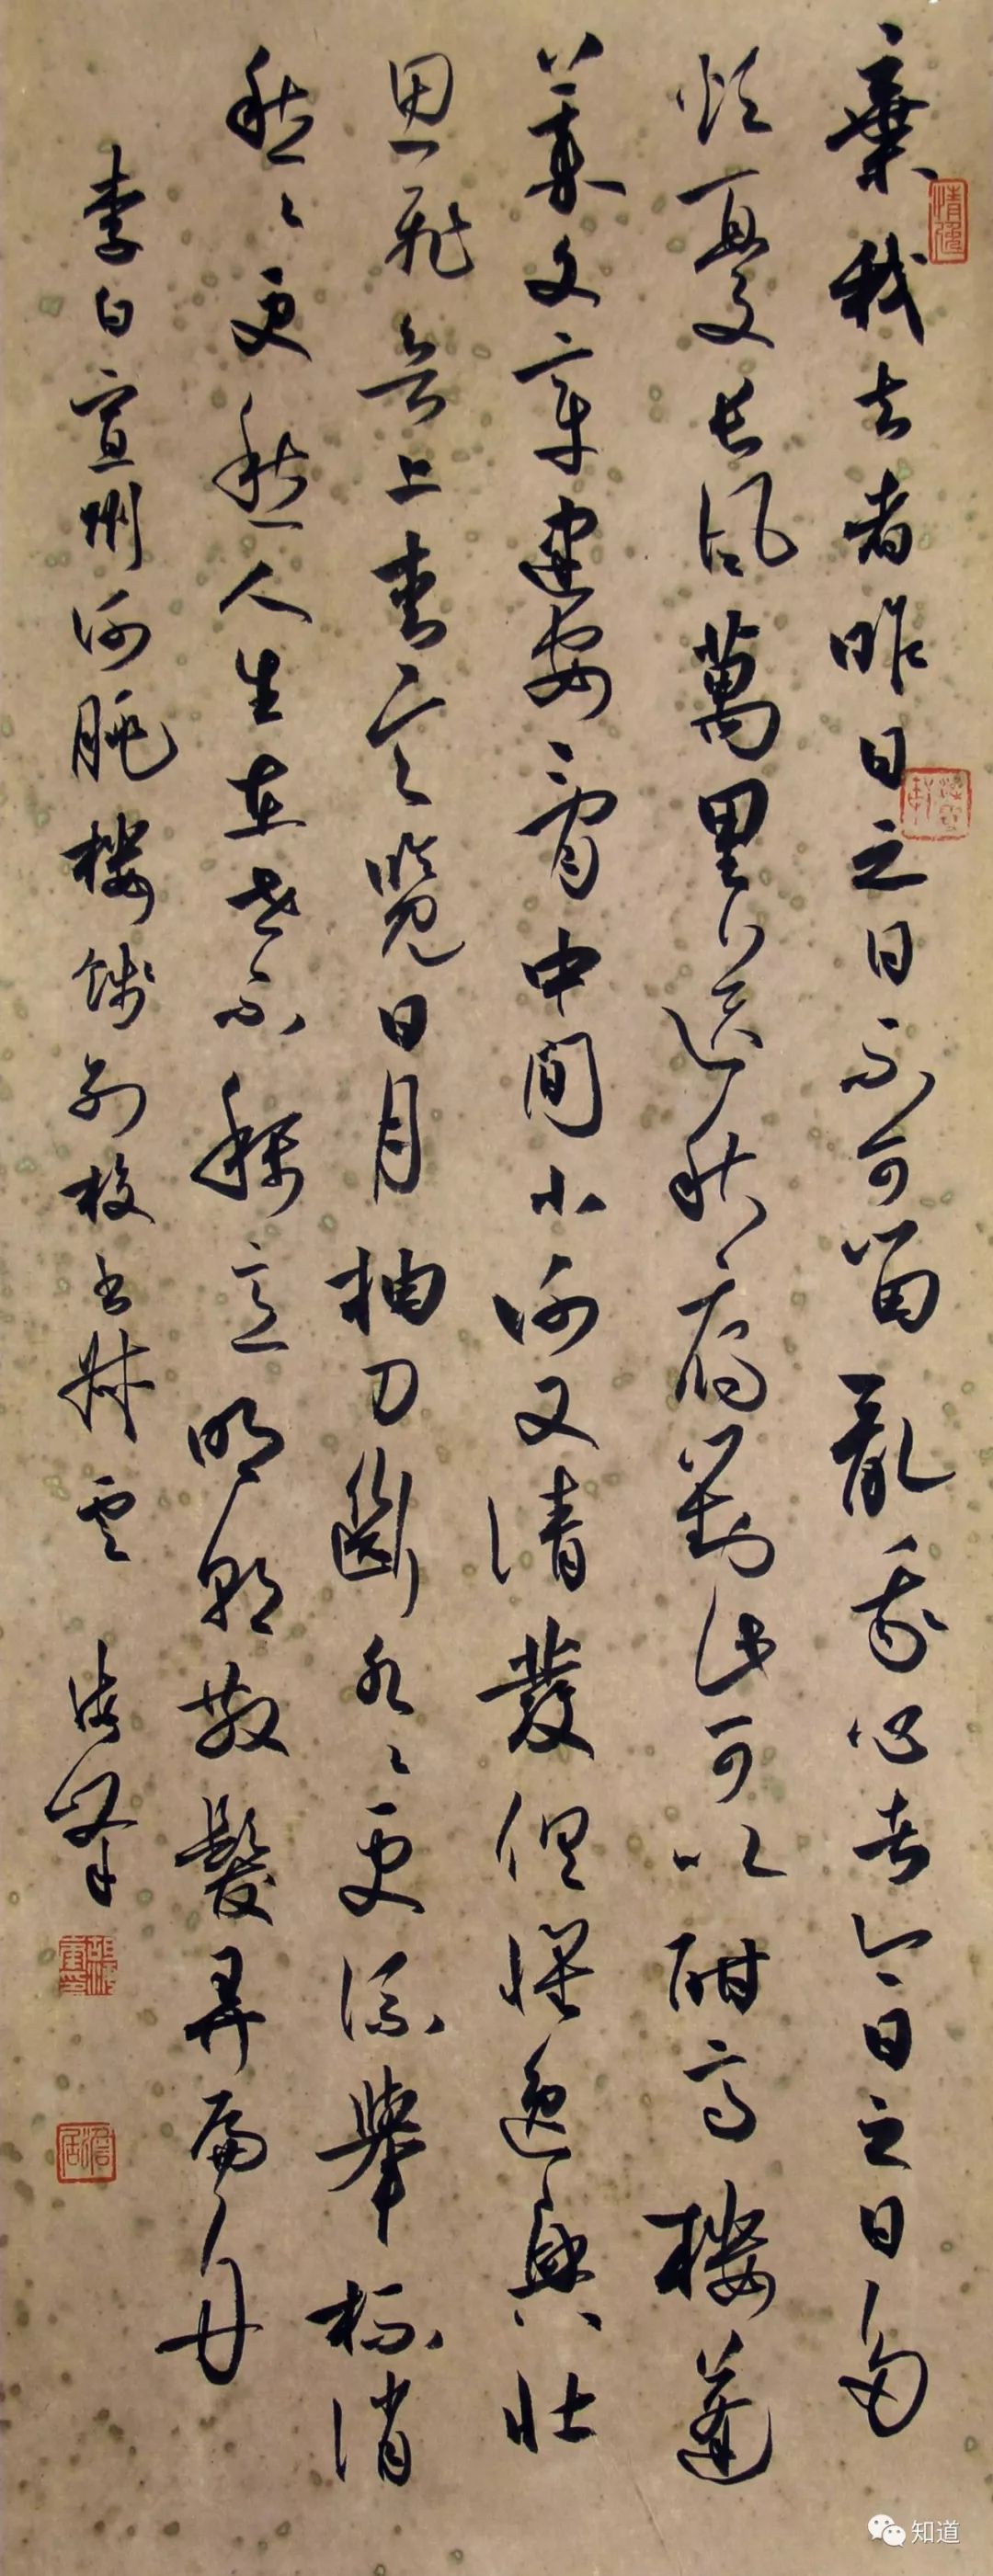 棄我去者昨日之日不可留亂我心者今日之日多
煩憂長風萬里送秋雁對此可以酣高樓蓬
萊文章建安骨中間小謝又清發俱懷逸興壯
思飛欲上青天覽日月抽刀斷水〻更流舉杯消
愁〻更愁人生在世不稱意明朝散髮弄扁舟
李白宣州謝朓樓餞別校書叔雲
知道